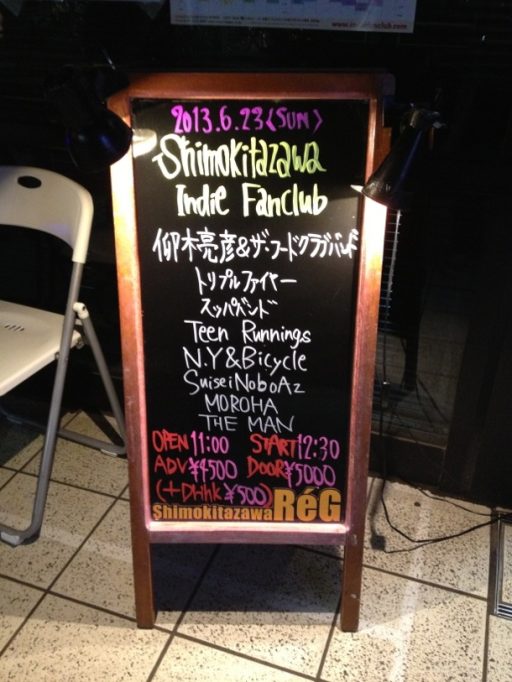 2013.6.23(SUN)
Shimokitazawa
Indie Fanclub
仰木亮彦&ザ・フードクラブバンド
トリプルファイヤー
スッパバンド
Teen Runnings
N.Y&Bicycle
SuiseiNoboAz
MOROHA
THE MAN
OPEN 11:00 START 12:30
ADV ¥4500 DOOR ¥5000
(+DHhk ¥500)
Shimokitazawa RéG